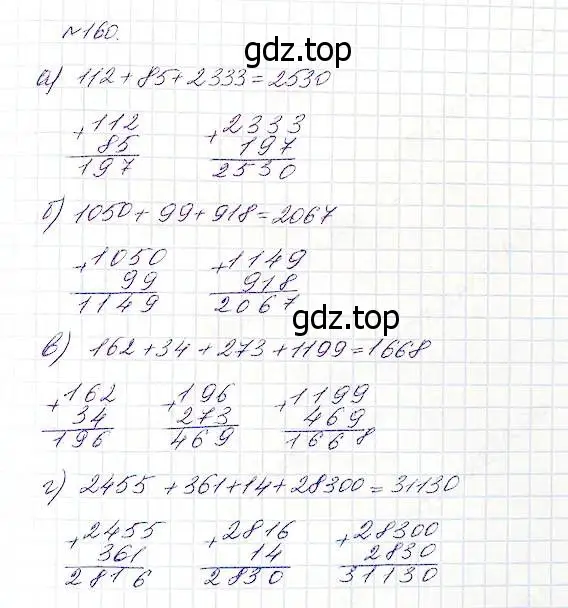 №160.
gdz.top
а) 112+85+2333=2530
+112 +2333
85 197
197 2530
б) 1050+99+918=2067
+1050 +1149
99 918
1149 2067
gdz.top
в) 162+34+273+1199=1668
+162 +196 +1199
34 273 469
196 469 1668
г) 2455+361+14+28300=31130
+2455 +2816 +28300
361 14 2830
2816 2830 31130